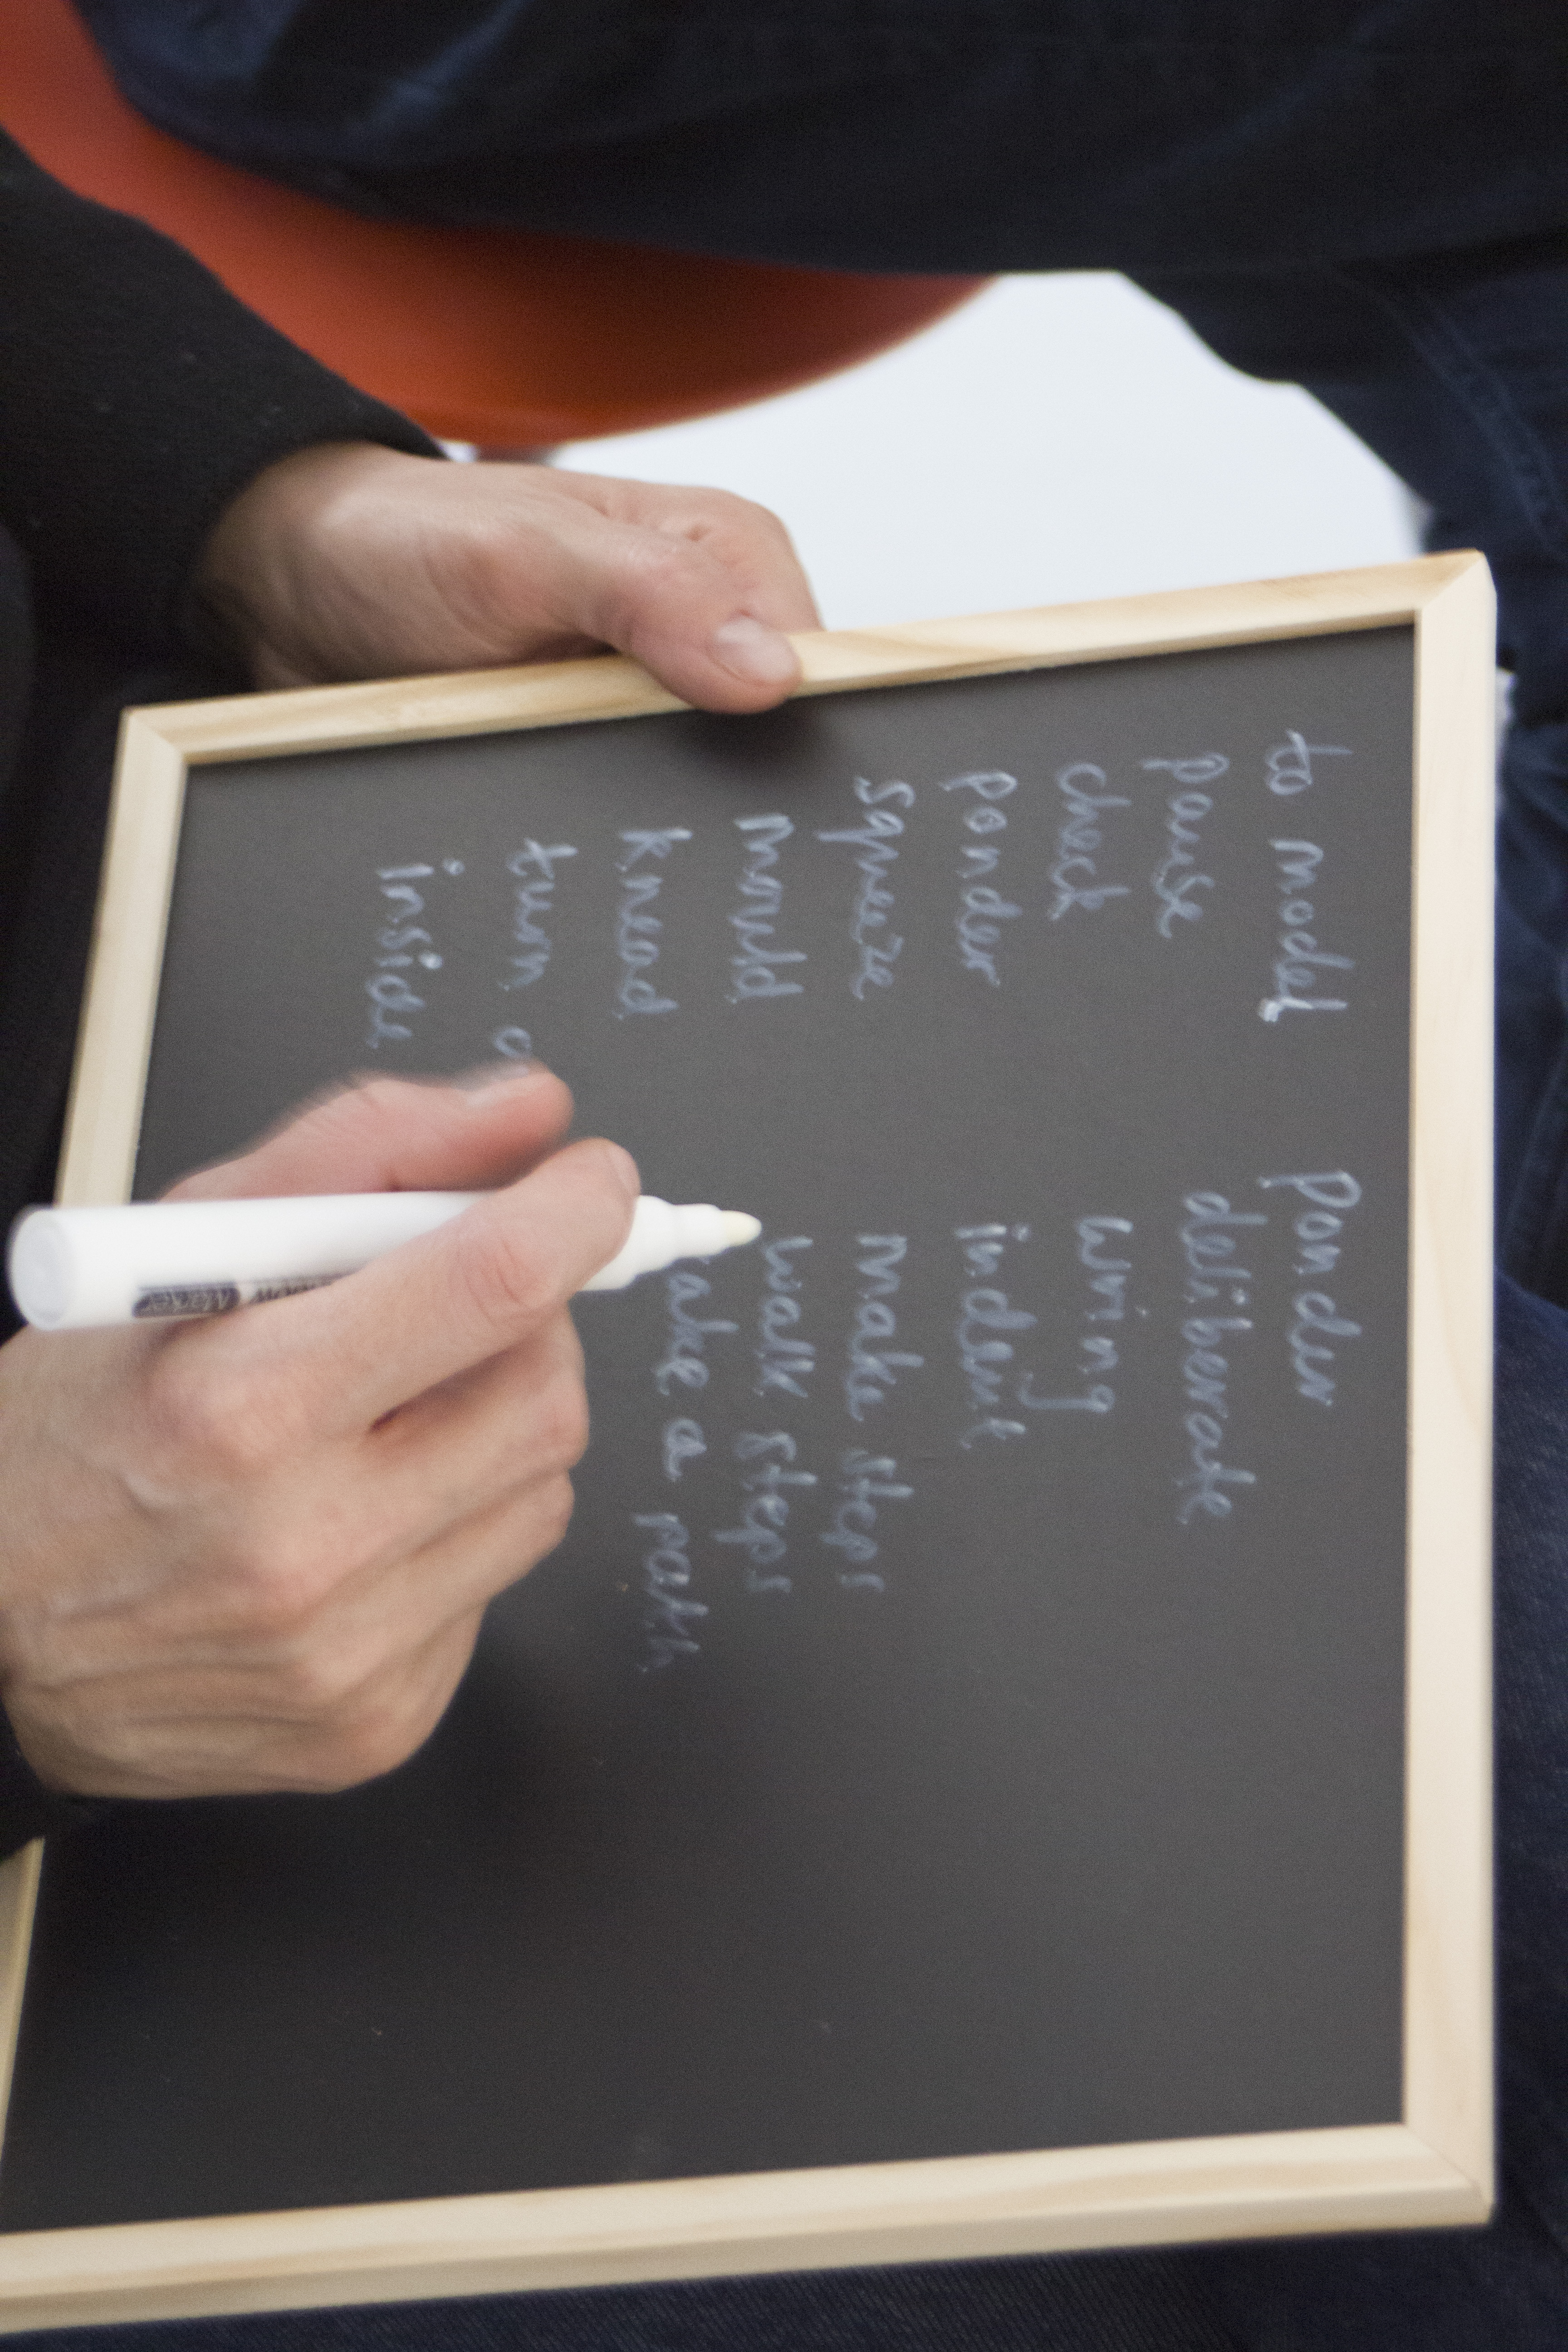 to model
pause
check
ponder
squeeze
mould
knead
turn
inside
ponder
deliberate
wring
indent
make steps
walk steps
a path
Marker